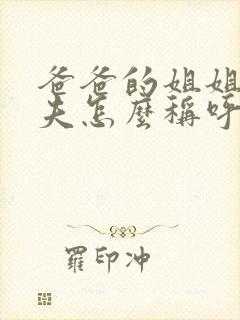 爸爸的姐姐
夫怎麼稱呼
羅印沖